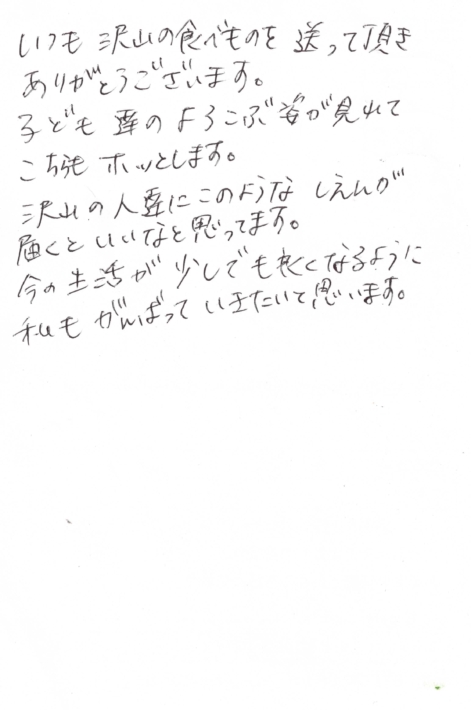 いつも 沢山の食べものを 送って頂き
ありがとうございます。
子ども 達の よろこぶ姿が見れて
こちらも ホッとします。
沢山の人達にこのような しえんが
届くと いいなと思ってます。
今の 生活が 少しでも良くなるように
私も がんばって いきたいと思います。